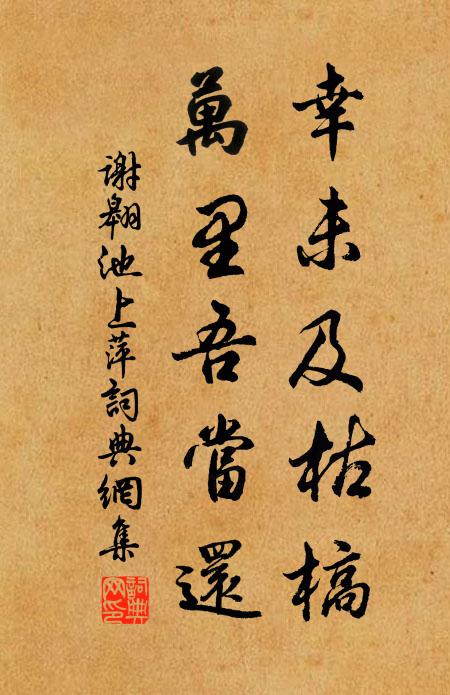 幸未及枯槁
萬里吾當還
謝翱池上萍詞典網集
詞典網印